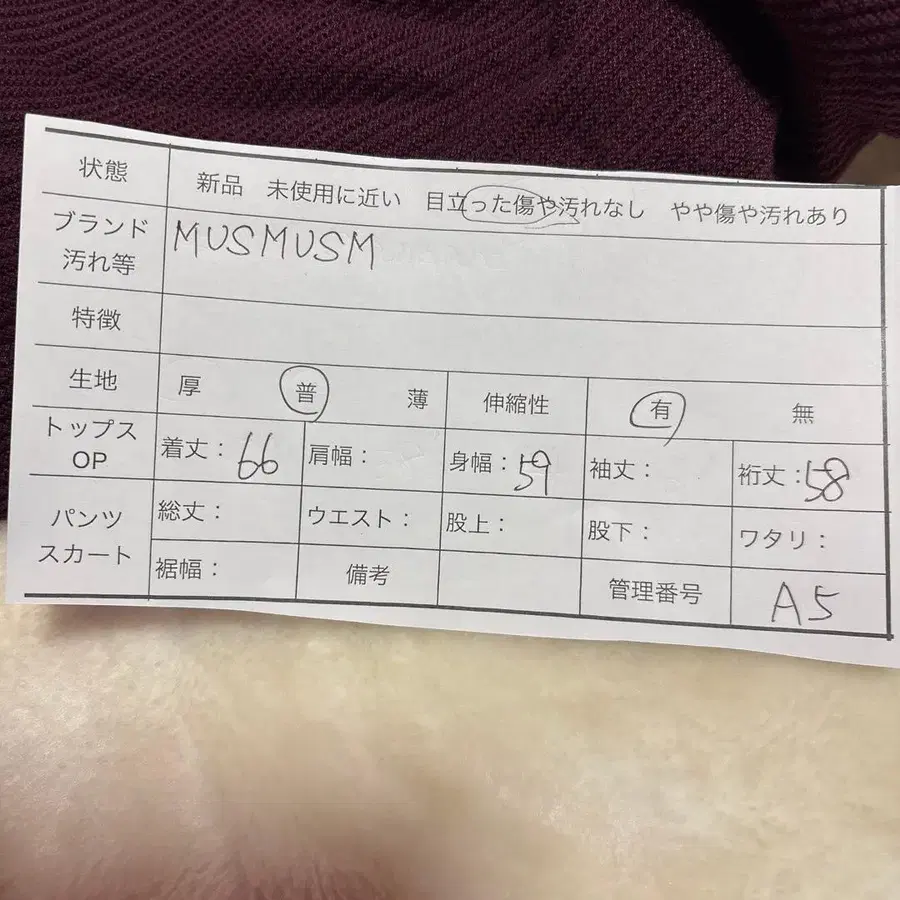 状態 新品 未使用に近い 目立った傷や汚れなし やや傷や汚れあり
ブランド
汚れ等 MUSMUSM
特徴
生地 厚 普 薄 伸縮性 有 無
トップス
OP 着丈：66 肩幅： 身幅：59 袖丈： 裄丈：58
パンツ
スカート 総丈： ウエスト： 股上： 股下： ワタリ：
裾幅： 備考 管理番号 A5